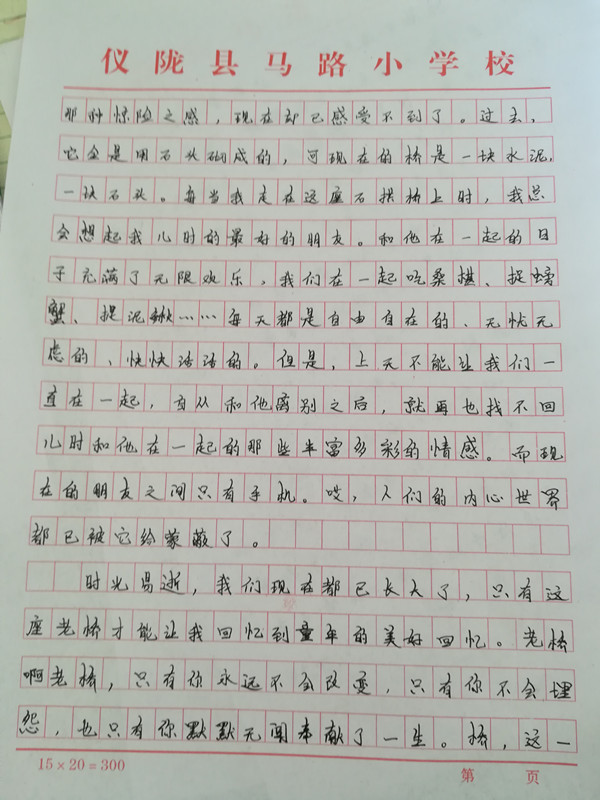 仪陇县马路小学校
那种惊险之感，现在却已感受不到了。过去，
它全是用石头砌成的，可现在的桥是一块水泥，
一块石头。每当我走在这座石拱桥上时，我总
会想起我儿时的最好的朋友。和他在一起的日
子充满了无限欢乐，我们在一起吃桑椹、捉螃
蟹、捏泥鳅……每天都是自由自在的、无忧无
虑的、快快活活的。但是，上天不能让我们一
直在一起，自从和他离别之后，就再也找不回
儿时和他在一起的那些丰富多彩的情感。而现
在的朋友之间只有手机。哎，人们的内心世界
都已被它给蒙蔽了。
时光易逝，我们现在都已长大了，只有这
座老桥才能让我回忆到童年的美好回忆。老桥
啊老桥，只有你永远不会改变，只有你不会埋
怨，也只有你默默无闻奉献了一生。桥，这一
15×20=300
第 页